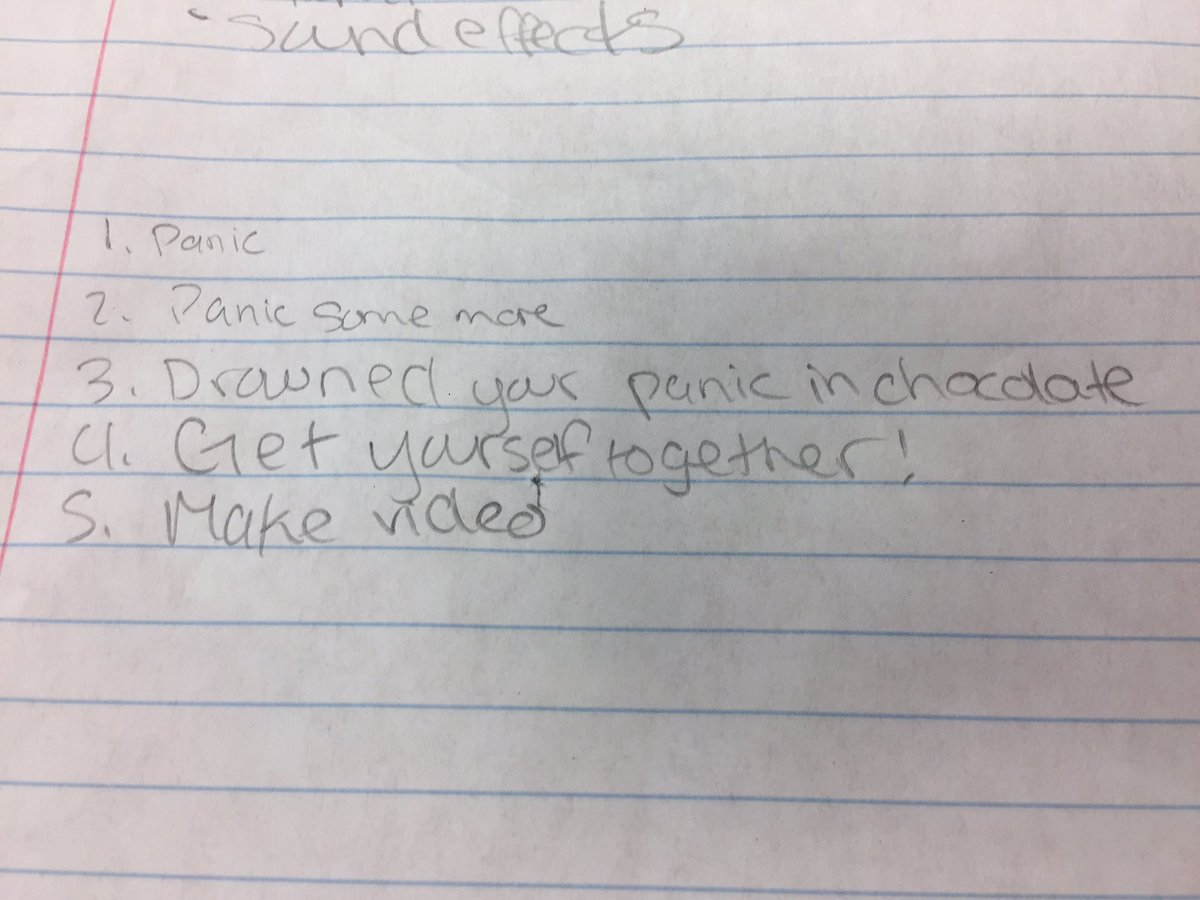 - sound effects
1. Panic
2. Panic some more
3. Drowned your panic in chocolate
4. Get yourself together!
5. Make video